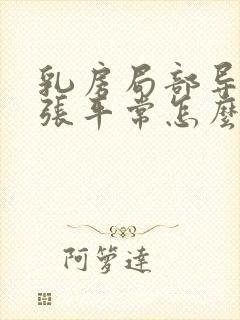 乳房局部导
张平常怎麼
阿箩達